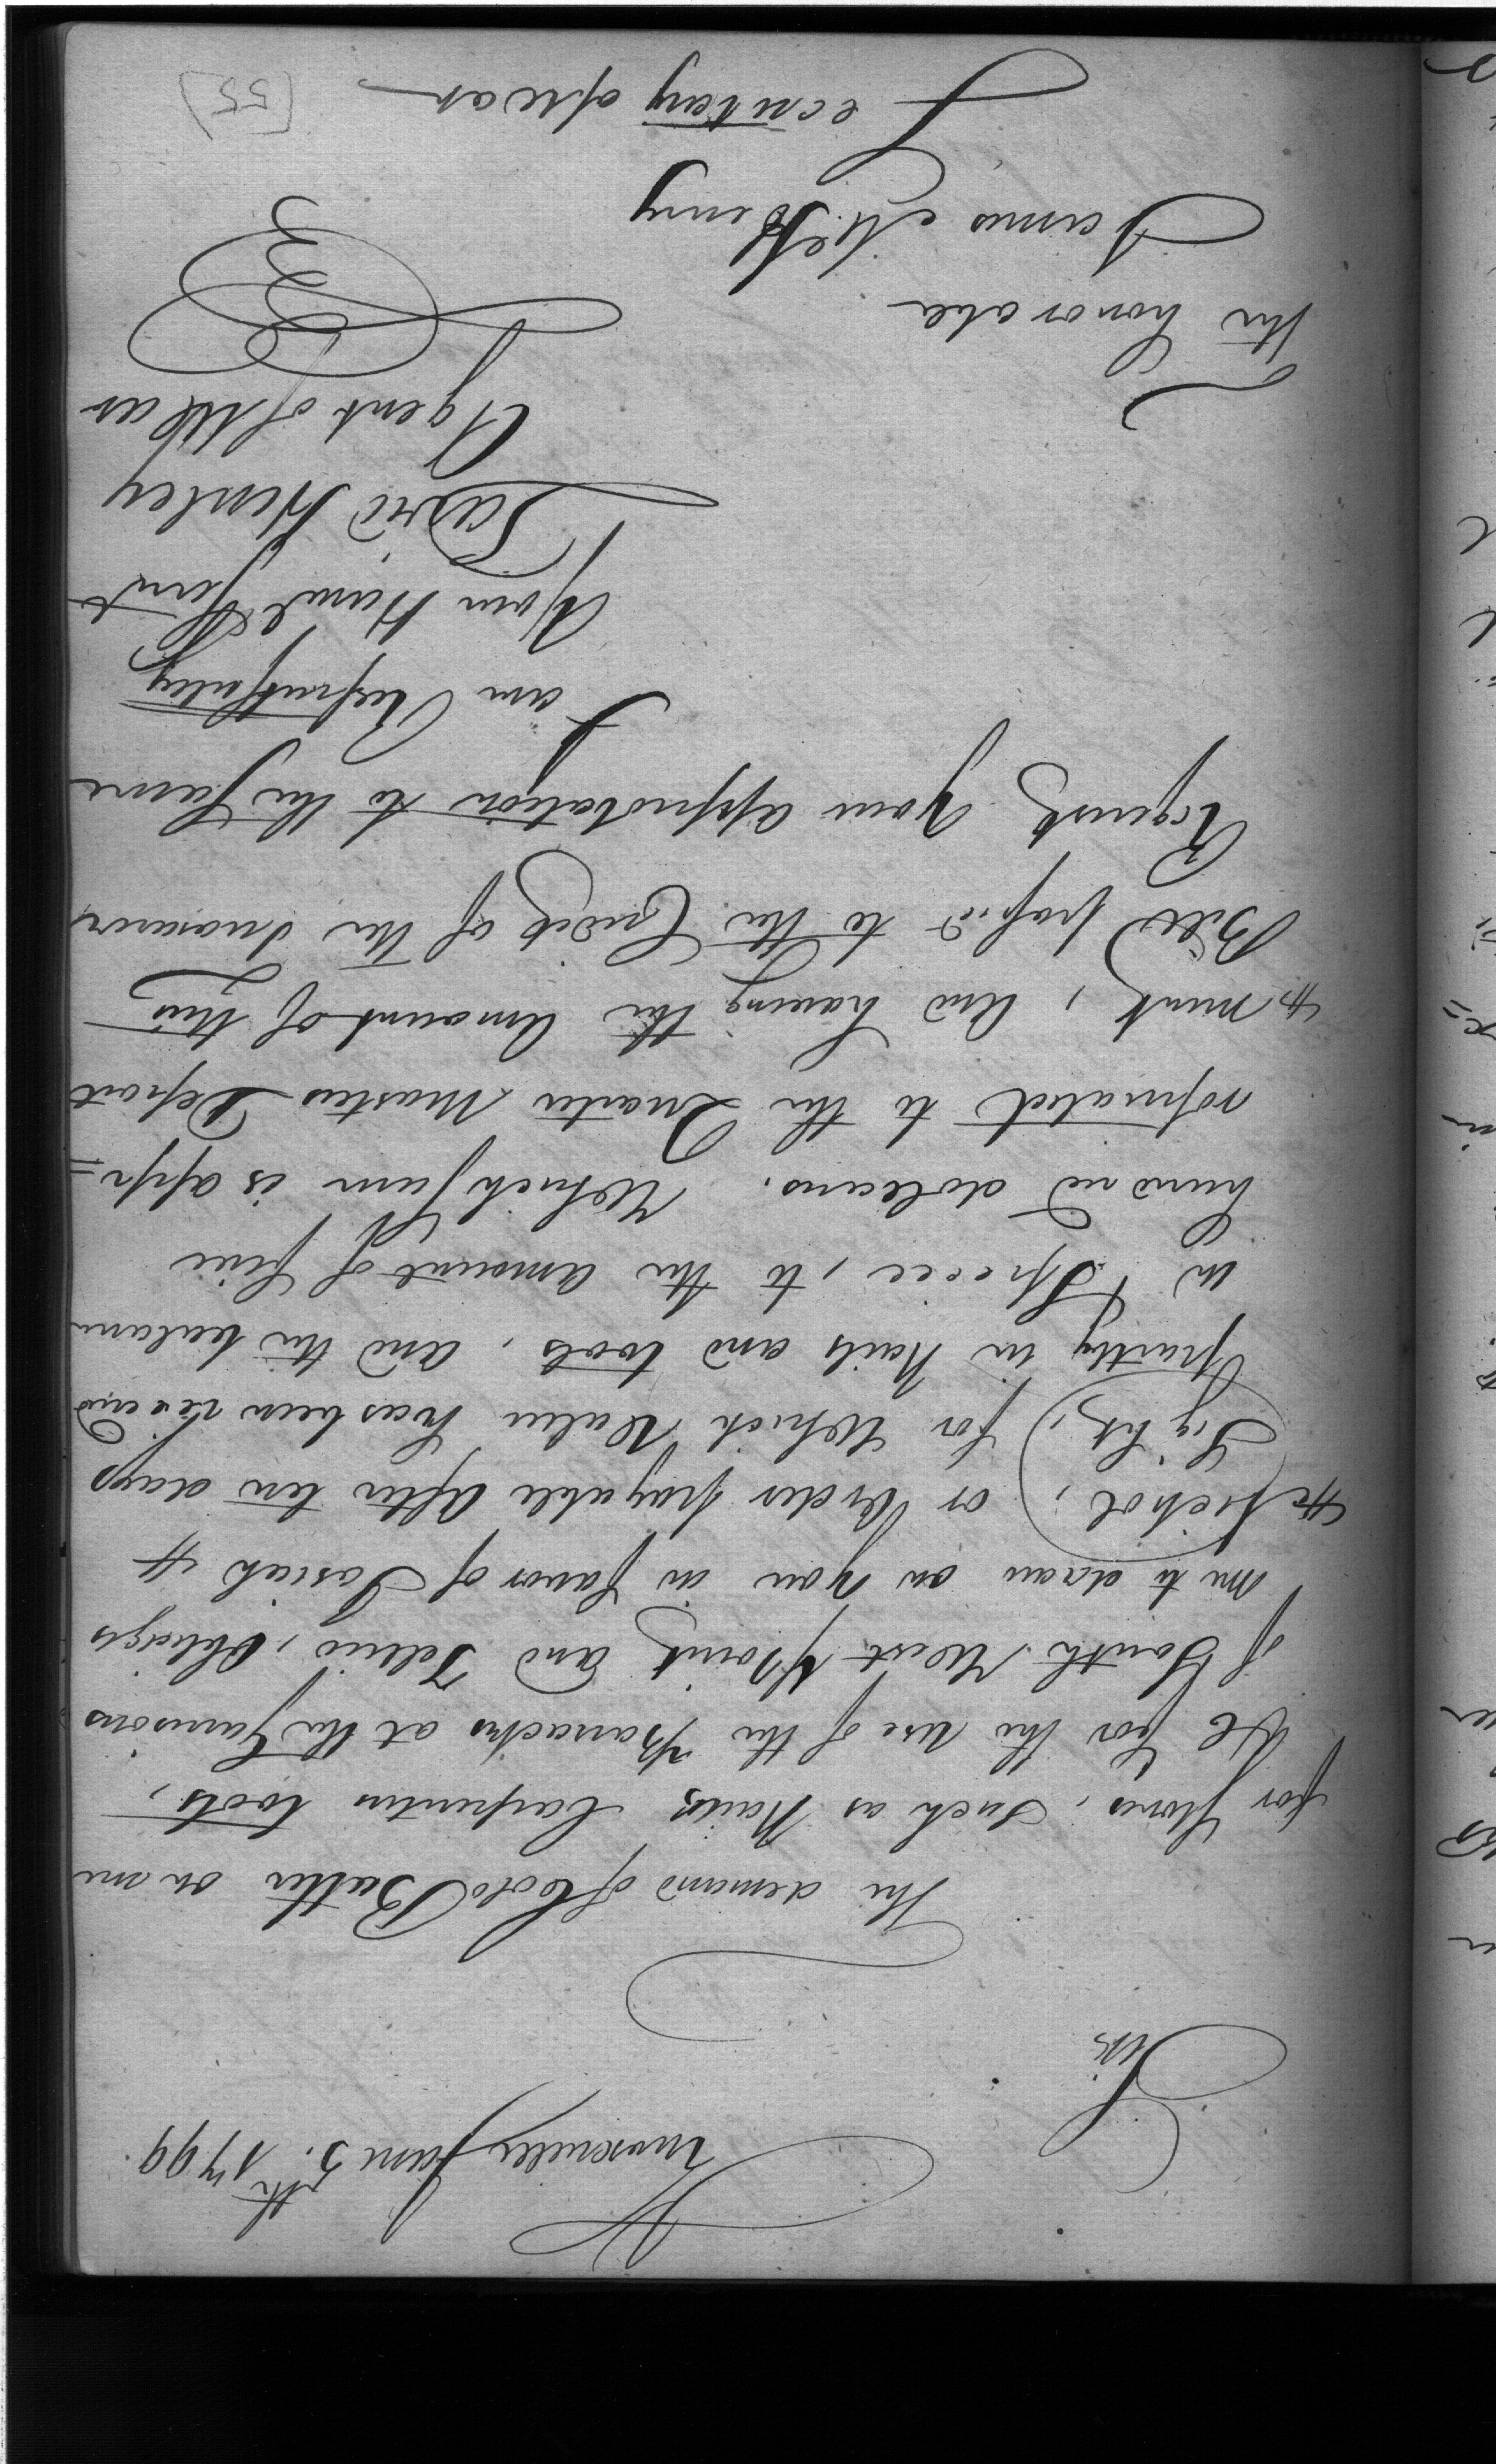 Knoxville Jany 5.th 1799.
Sir
The demand of Colo Butler on me
for Stores, Such as Nails, Carpenters tools,
&c for the use of the Barracks at the Garrisons
of South West Point, and Tellico, Obliges
me to draw on you in favor of Josiah
Nichol, or Order payable after ten days
Sight, for Which Value has been receivd
partly in Nails and tools, and the balance
in Specie, to the Amount of five
hundred dollars. Which Sum is app=
ropriated to the Quarter Masters Depart
ment, and having the Amount of this
Bill pass'd to the Credit of the Treasurer
Request your approbation to the Same
I am Respectfully
Your Humble Servt
David Henley
Agent of War
The honorable
James McHenry
Secretary of War
[55]